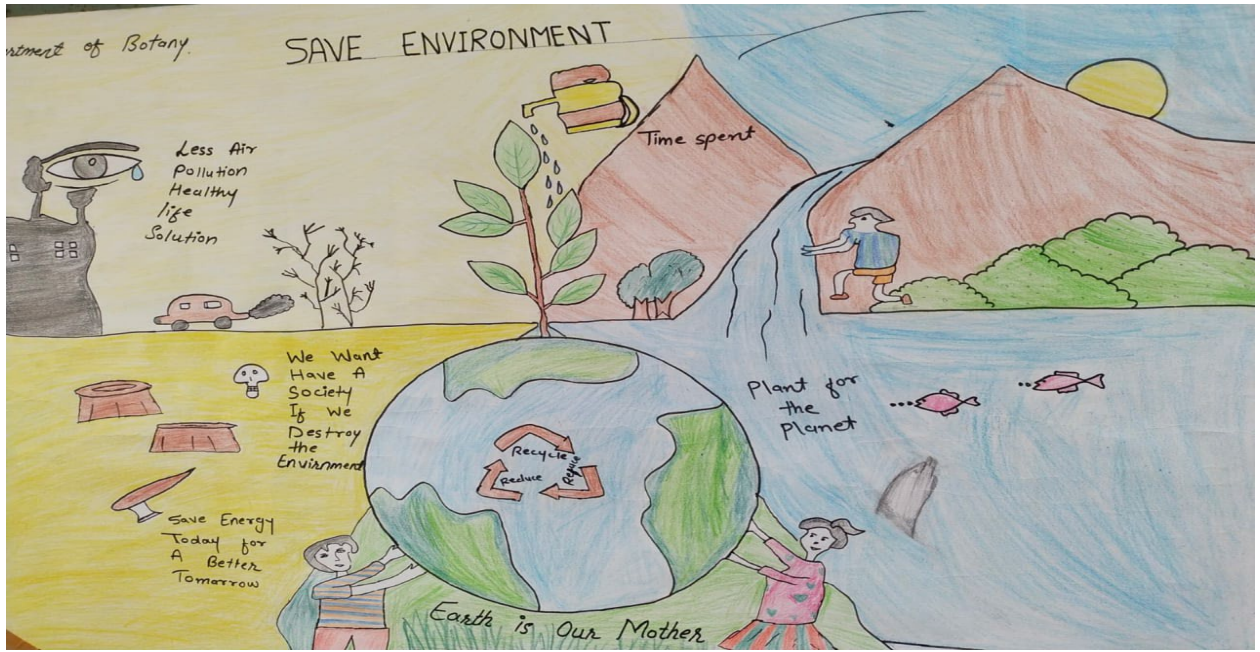 of Botany.
SAVE ENVIRONMENT
Less Air
Pollution
Healthy
life
Solution
Time spent
We Want
Have A
Society
If We
Destroy
the
Envirnment
Plant for
the
Planet
Recycle
Reduce
Save Energy
Today for
A Better
Tomorrow
Earth is Our Mother